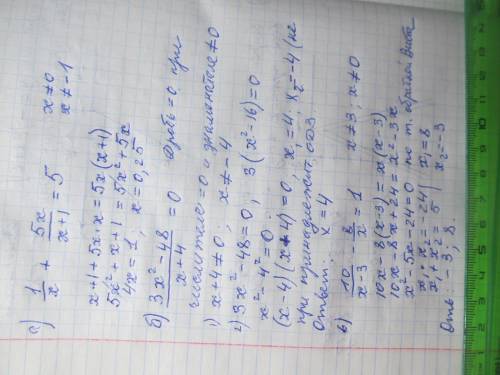 а) 1/x + 5x/(x+1) = 5   x≠0
x≠-1
x+1+5x·x=5x(x+1)
5x²+x+1=5x²+5x
4x=1, x=0,25
б) (3x²-48)/(x+4) = 0   Дробь=0 при
числителе=0 и знаменателе≠0
1) x+4≠0, x≠-4
2) 3x²-48=0, 3(x²-16)=0
x²-4²=0
(x-4)(x+4)=0, x₁=4, x₂=-4 (не
принадлежит ОДЗ
Ответ: x=4
в) 10/(x-3) - 8/x = 1   x≠3; x≠0
10x-8(x-3)=x(x-3)
10x-8x+24=x²-3x
x²-5x-24=0 по т. обратной Виета
x₁·x₂=-24 | x₁=8
x₁+x₂=5 | x₂=-3
Отв: -3; 8.